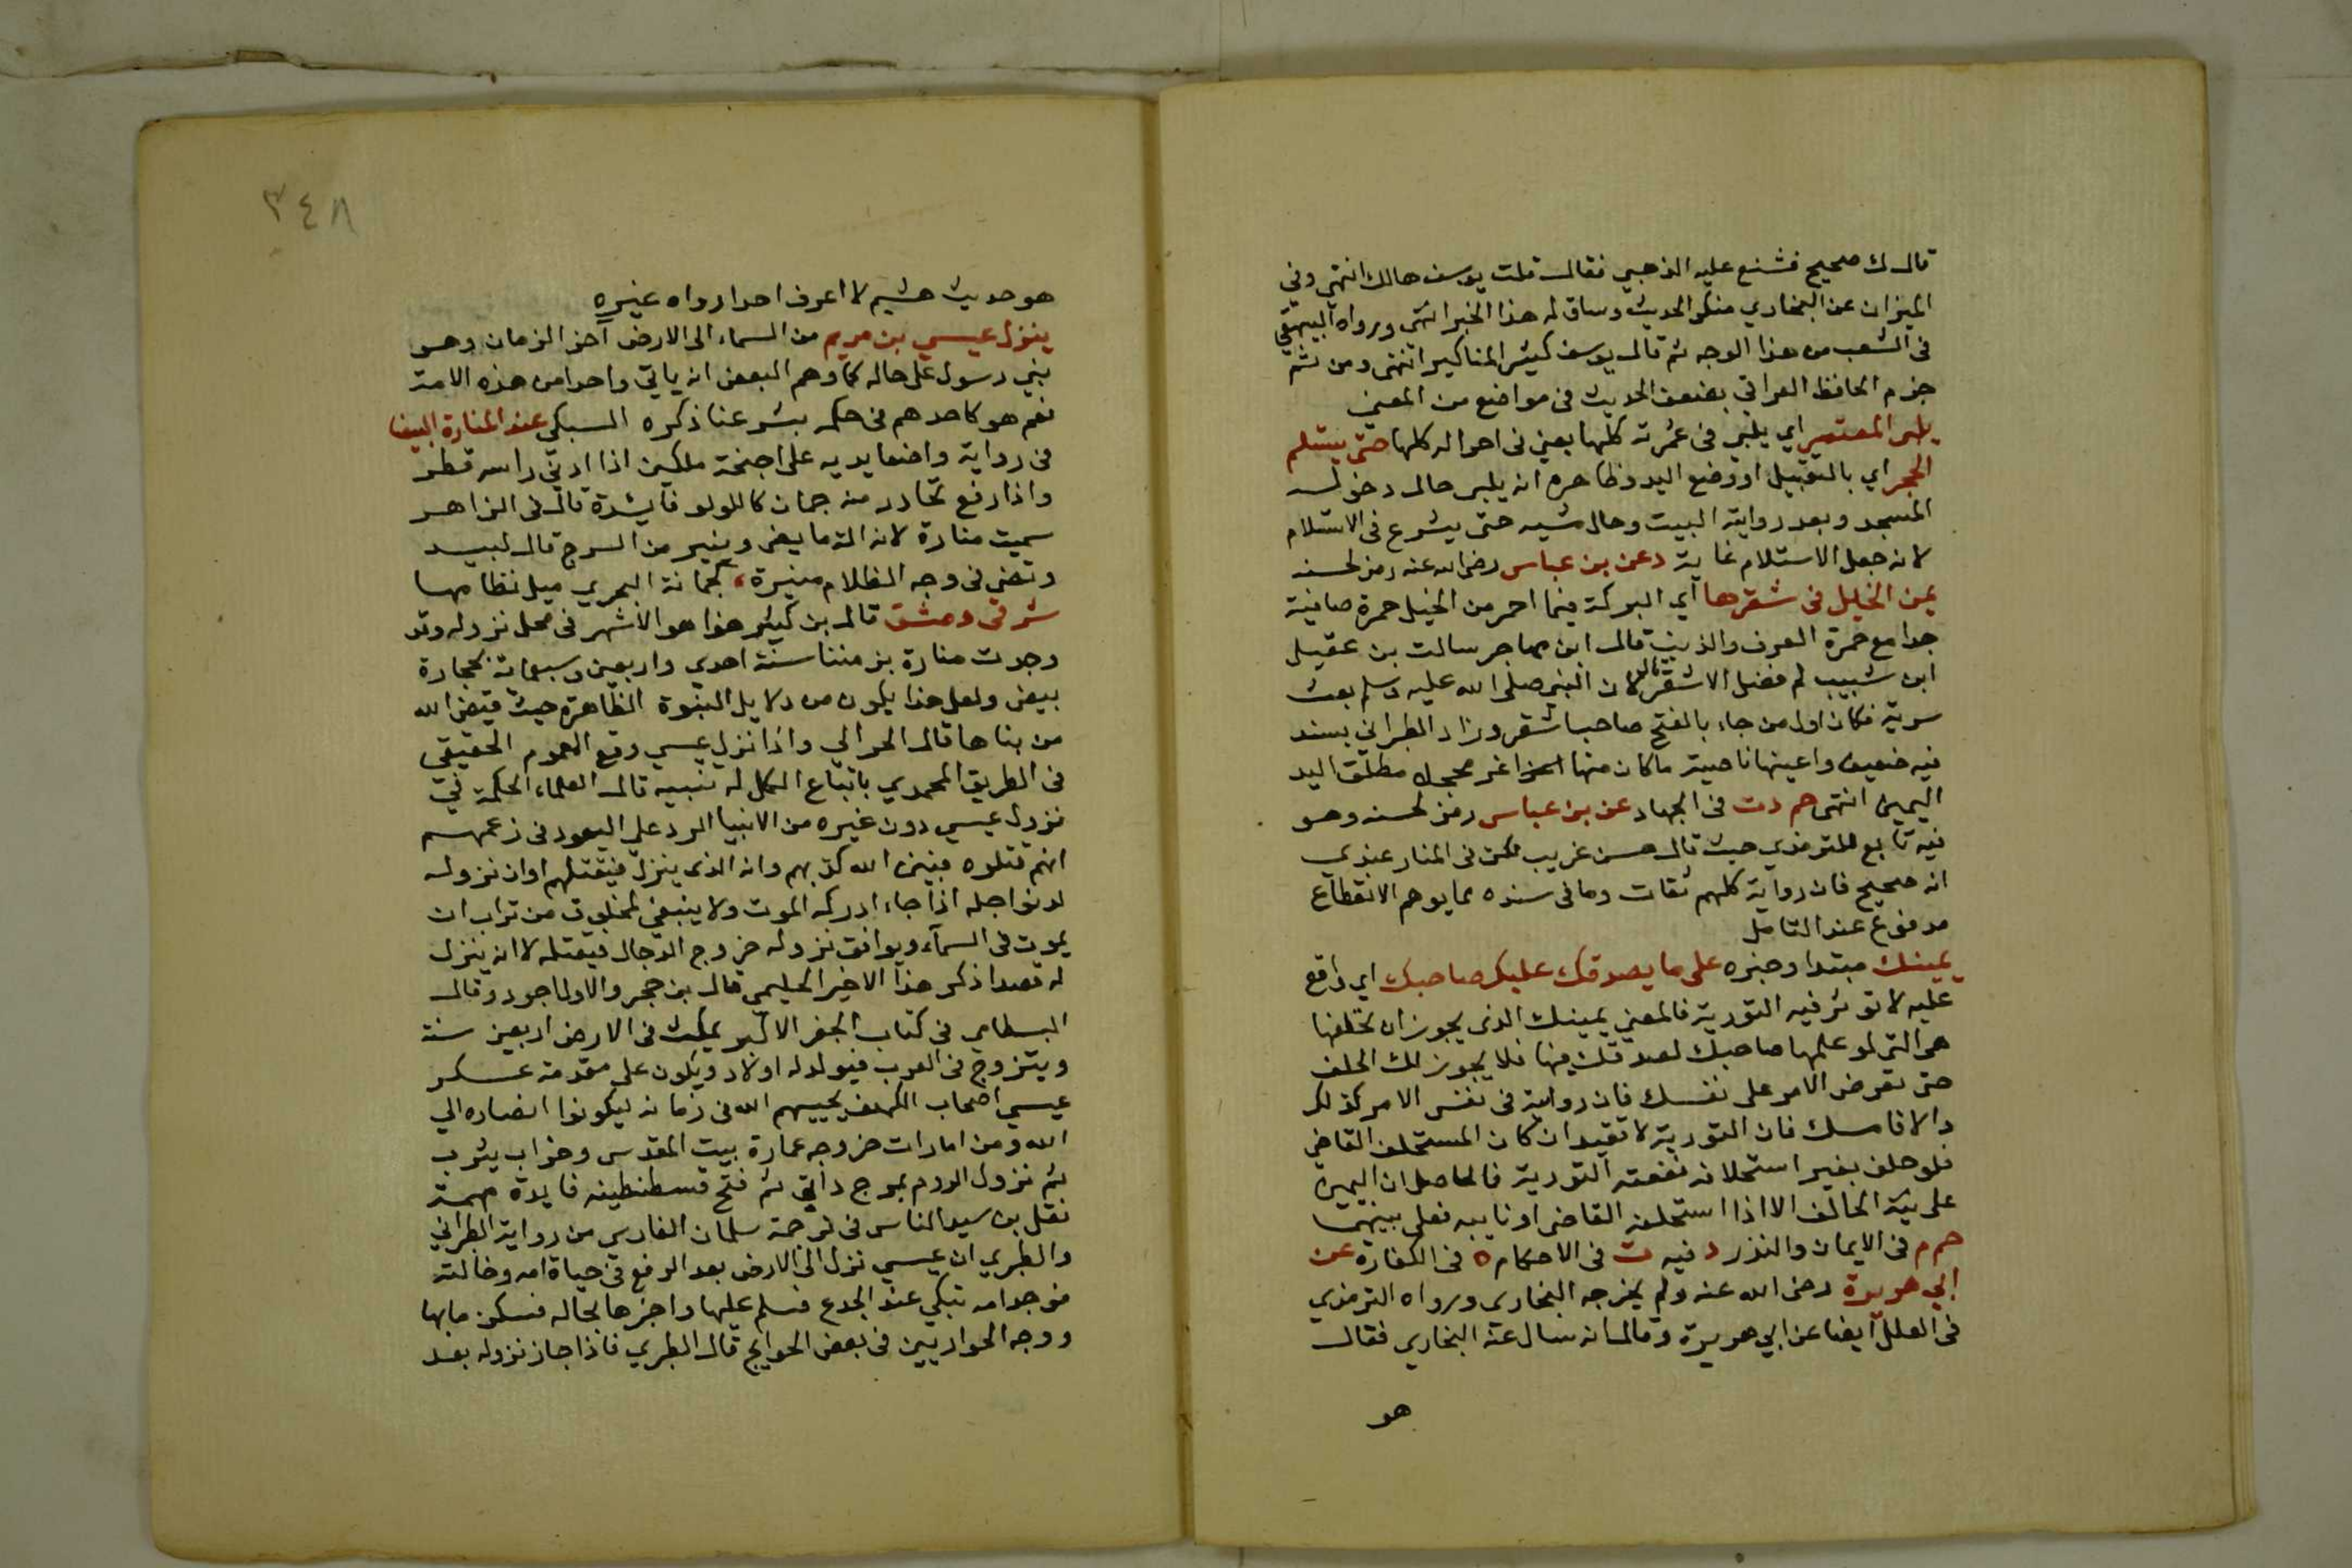 قال ك صحيح فشنع عليه الذهبي فقال قلت يوسف هالك انتهى وفي
الميزان عن البخاري منكر الحديث وساق له هذا الخبر انتهى ورواه البيهقي
في الشعب من هذا الوجه ثم قال يوسف كثير المناكير انتهى ومن ثم
جزم الحافظ العراقي بضعف الحديث في مواضع من المغني
يلبى المعتمر اي يلبي في عمرته كلها يعني في احواله كلها حتى يستلم
الحجر اي بالتقبيل او وضع اليد وظاهره انه يلبى حال دخوله
المسجد وبعد رواية البيت وحال مشيه حتى يشرع في الاستلام
لانه جعل الاستلام غاية د عن بن عباس رضى الله عنه رمز لحسنه
يمن الخيل في شقرها اي البركة فيما احمر من الخيل حمرة صافية
جدا مع حمرة العرف والذنب قال ابن مهاجر سالت بن عقيل
ابن شبيب لم فضل الاشقر قال لان النبى صلى الله عليه وسلم بعث
سرية فكان اول من جاء بالفتح صاحب اشقر وزاد الطبراني بسند
فيه ضعيف واعينها ناصية ماكان منها اغر محجل مطلق اليد
اليمين انتهى حم د ت في الجهاد عن بن عباس رمز لحسنه وهو
فيه تابع للترمذي حيث قال حسن غريب لكن في المنار عندي
انه صحيح فان رواية كلهم ثقات وما في سنده مما يوهم الانقطاع
مدفوع عند التامل
يمينك مبتدا وخبره على ما يصدقك عليك صاحبك اي واقع
عليه لا تؤثر فيه التورية فالمعني يمينك الذى يجوز ان تحلفها
هي التى لو علمها صاحبك لصدقك فيها فلا يجوز لك الحلف
حتى تعرض الامر على نفسك فان رواية في نفس الامر كذلك
والا فامسك فان التورية لا تفيد ان كان المستحلف القاضي
فلو حلف بغير استحلافه نفعته التورية فالحاصل ان اليمين
على نية الحالف الا اذا استحلفه القاضى او نايبه فعلى نيتهما
حم م في الايمان والنذر د فيه ت في الاحكام ه في الكفاره عن
ابي هريرة رضى الله عنه ولم يخرجه البخارى ورواه الترمذي
في العلل ايضا عن ابي هريرة وقال انه سال عنه البخاري فقال
هو
٣٤٨
هو حديث هشيم لا اعرف احدا رواه غيره
ينزل عيسي بن مريم من السماء الى الارض آخر الزمان وهو
نبي رسول على حاله كما وهم البعض انه ياتي واحدا من هذه الامة
نعم هو كاحدهم في حكمه بشرعنا ذكره السبكي عند المنارة البيضا
في رواية واضعا يديه على اجنحة ملكين اذا ادنى راسه قطر
واذا رفع تحادر منه جمان كاللولو فايدة قال في الزاهر
سميت منارة لانه الة ما يضى وينير من السرج قال لبيد
وتضى في وجه الظلام منيرة، كجمانة البحري سل نظامها
شرقي دمشق قال بن كثير هذا هو الاشهر في محل نزوله وقد
وجدت منارة بزمننا سنة احدي واربعين وسبعماية بحجارة
بيض ولعل هذا يكون من دلايل النبوة الظاهرة حيث قيض الله
من بناها قال الحرالي واذا نزل عيسى وقع العموم الحقيقي
في الطريق المحمدي باتباع الكل له تنبيه قال العلماء الحكمة في
نزول عيسي دون غيره من الانبيا الرد على اليهود في زعمهم
انهم قتلوه فبين الله كذبهم وانه الذى ينزل فيقتلهم او ان نزوله
لدنو اجله اذا جاء ادركه الموت ولا ينبغي لمخلوق من تراب ان
يموت في السماء ويوافق نزوله خروج الدجال فيقتله لا انه ينزل
له قصدا ذكر هذا الاخير الحليمي قال بن حجر والاول اجود وقال
البسطامي في كتاب الجفر الاكبر يمكث في الارض اربعين سنة
ويتزوج في العرب فيولد له اولاد ويكون على مقدمة عسكر
عيسي اصحاب الكهف يحييهم الله في زمانه ليكونوا انصاره الي
الله ومن امارات خروجه عمارة بيت المقدس وخراب يثرب
ثم نزول الروم بمرج دابق ثم فتح قسطنطينه فايدة مهمة
نقل بن سيد الناس في ترجمة سلمان الفارسى من رواية الطبراني
والطبري ان عيسي نزل الى الارض بعد الرفع في حياة امه وخالته
فوجد امه تبكي عند الجذع فسلم عليها واخبرها بحاله فسكن ما بها
ووجه الحواريين في بعض الحوايج قال الطبري فاذا جاز نزوله بعد